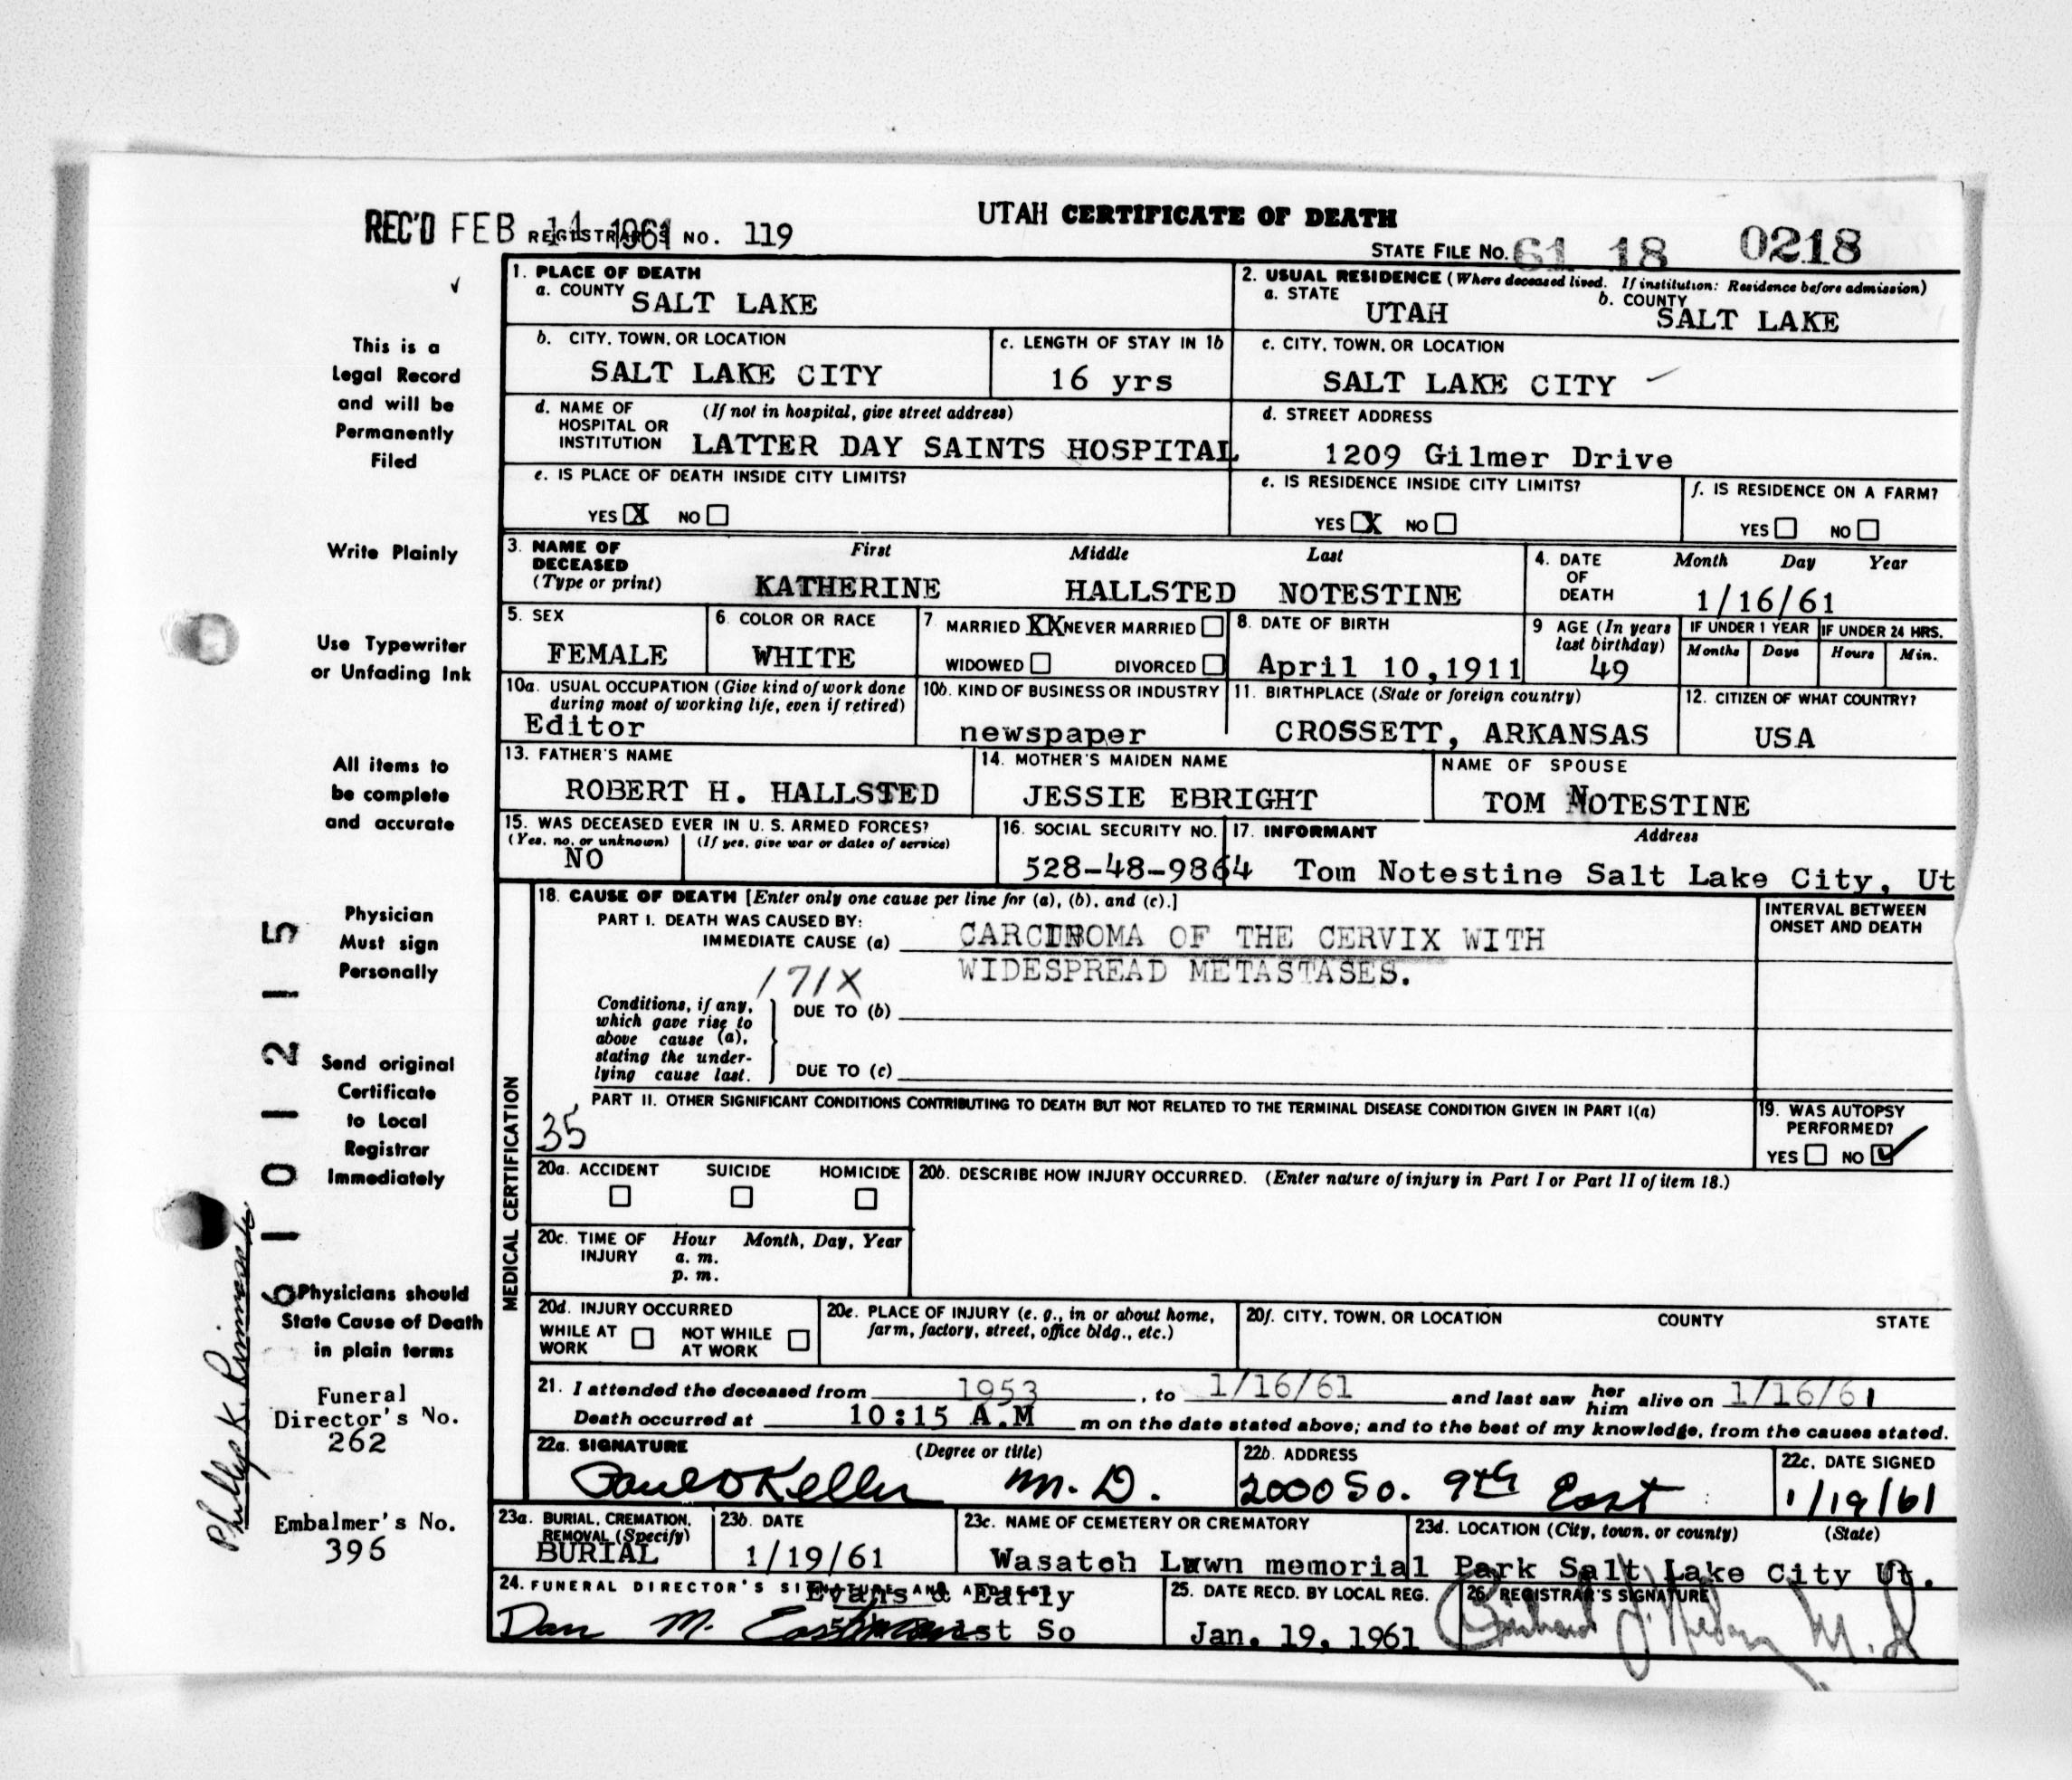 UTAH CERTIFICATE OF DEATH
REC'D FEB 1961 REGISTRAR'S NO. 119
STATE FILE NO. 61 18 0218
1. PLACE OF DEATH
a. COUNTY SALT LAKE
2. USUAL RESIDENCE (Where deceased lived. If institution: Residence before admission)
a. STATE UTAH b. COUNTY SALT LAKE
b. CITY, TOWN, OR LOCATION SALT LAKE CITY
c. LENGTH OF STAY IN 1b 16 yrs
c. CITY, TOWN, OR LOCATION SALT LAKE CITY
d. NAME OF HOSPITAL OR INSTITUTION (If not in hospital, give street address) LATTER DAY SAINTS HOSPITAL
d. STREET ADDRESS 1209 Gilmer Drive
e. IS PLACE OF DEATH INSIDE CITY LIMITS?
YES X NO
e. IS RESIDENCE INSIDE CITY LIMITS?
YES X NO
f. IS RESIDENCE ON A FARM?
YES NO
3. NAME OF DECEASED (Type or print) First Middle Last
KATHERINE HALLSTED NOTESTINE
4. DATE OF DEATH Month Day Year
1/16/61
5. SEX FEMALE
6. COLOR OR RACE WHITE
7 MARRIED XX NEVER MARRIED
WIDOWED DIVORCED
8. DATE OF BIRTH April 10,1911
9 AGE (In years last birthday) 49
IF UNDER 1 YEAR Months Days
IF UNDER 24 HRS. Hours Min.
10a. USUAL OCCUPATION (Give kind of work done during most of working life, even if retired) Editor
10b. KIND OF BUSINESS OR INDUSTRY newspaper
11. BIRTHPLACE (State or foreign country) CROSSETT, ARKANSAS
12. CITIZEN OF WHAT COUNTRY? USA
13. FATHER'S NAME ROBERT H. HALLSTED
14. MOTHER'S MAIDEN NAME JESSIE EBRIGHT
NAME OF SPOUSE TOM NOTESTINE
15. WAS DECEASED EVER IN U. S. ARMED FORCES?
(Yes, no, or unknown) (If yes, give war or dates of service)
NO
16. SOCIAL SECURITY NO. 528-48-9864
17. INFORMANT Address
Tom Notestine Salt Lake City, Ut
MEDICAL CERTIFICATION
18. CAUSE OF DEATH [Enter only one cause per line for (a), (b), and (c).]
PART I. DEATH WAS CAUSED BY:
IMMEDIATE CAUSE (a) CARCINOMA OF THE CERVIX WITH
WIDESPREAD METASTASES.
171X
Conditions, if any, which gave rise to above cause (a), stating the underlying cause last.
DUE TO (b)
DUE TO (c)
INTERVAL BETWEEN ONSET AND DEATH
PART II. OTHER SIGNIFICANT CONDITIONS CONTRIBUTING TO DEATH BUT NOT RELATED TO THE TERMINAL DISEASE CONDITION GIVEN IN PART I(a)
35
19. WAS AUTOPSY PERFORMED?
YES NO ✓
20a. ACCIDENT SUICIDE HOMICIDE
20b. DESCRIBE HOW INJURY OCCURRED. (Enter nature of injury in Part I or Part II of item 18.)
20c. TIME OF INJURY Hour a. m. p. m. Month, Day, Year
20d. INJURY OCCURRED
WHILE AT WORK NOT WHILE AT WORK
20e. PLACE OF INJURY (e. g., in or about home, farm, factory, street, office bldg., etc.)
20f. CITY, TOWN, OR LOCATION COUNTY STATE
21. I attended the deceased from 1953, to 1/16/61 and last saw her him alive on 1/16/61
Death occurred at 10:15 A.M m on the date stated above; and to the best of my knowledge, from the causes stated.
22a. SIGNATURE (Degree or title)
Paul D Keller M. D.
22b. ADDRESS 2000 So. 9th East
22c. DATE SIGNED 1/19/61
23a. BURIAL, CREMATION, REMOVAL (Specify) BURIAL
23b. DATE 1/19/61
23c. NAME OF CEMETERY OR CREMATORY
23d. LOCATION (City, town, or county) (State)
Wasatch Lawn memorial Park Salt Lake City Ut.
24. FUNERAL DIRECTOR'S SIGNATURE AND ADDRESS
Evans & Early
Dan M. Eastman
1st So
25. DATE RECD. BY LOCAL REG. Jan. 19, 1961
26. REGISTRAR'S SIGNATURE
This is a
Legal Record
and will be
Permanently
Filed
Write Plainly
Use Typewriter
or Unfading Ink
All items to
be complete
and accurate
Physician
Must sign
Personally
Send original
Certificate
to Local
Registrar
Immediately
Physicians should
State Cause of Death
in plain terms
Funeral
Director's No.
262
Embalmer's No.
396
6101215